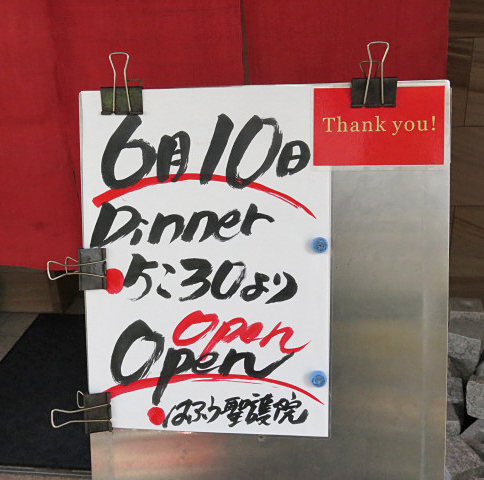 6月10日
Thank you!
Dinner
5:30より
Open
Open
はふう聖護院